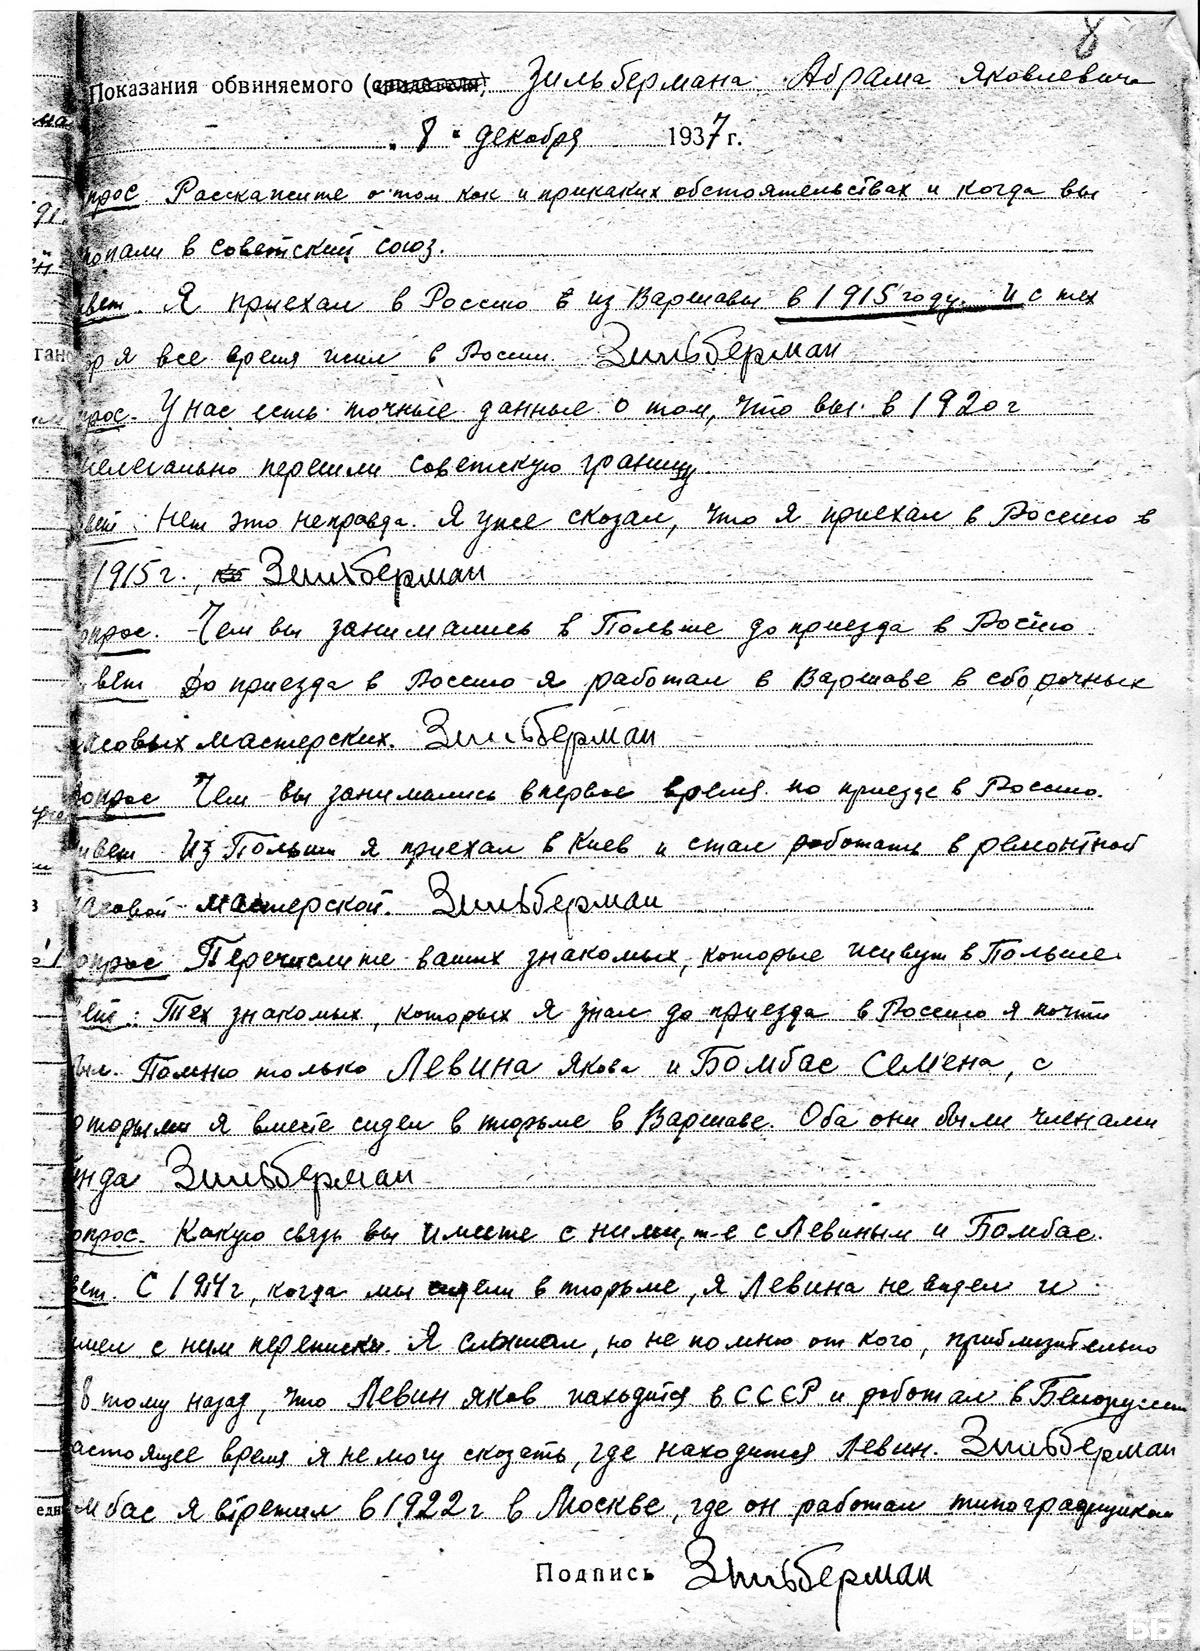 8
Показания обвиняемого (свидетеля) Зильбермана Абрама Яковлевича
„ 8 " декабря 1937 г.
прос. Расскажите о том как и прикаких обстоятельствах и когда вы
попали в советский союз.
вет. Я приехал в Россию из Варшавы в 1915 году. И с тех
ор я все время жил в России. Зильберман
прос. У нас есть точные данные о том, что вы в 1920 г
нелегально перешли советскую границу.
вет: Нет это неправда. Я уже сказал, что я приехал в Россию в
1915 г., Зильберман
опрос. Чем вы занимались в Польше до приезда в Росию
вет До приезда в Россию я работал в Варшаве в сборочных
часовых мастерских. Зильберман
Вопрос Чем вы занимались впервое время по приезде в Россию.
твет Из Польши я приехал в Киев и стал работать в ремонтной
часовой мастерской. Зильберман
опрос Перечислите ваших знакомых, которые живут в Польше.
вет: Тех знакомых, которых я знал до приезда в Россию я почти
был. Помню только Левина Якова и Бомбас Семена, с
оторыми я вместе сидел в тюрьме в Варшаве. Оба они были членами
нда Зильберман
опрос. Какую связь вы имеете с ними, т-е с Левиным и Бомбас.
вет. С 1914 г, когда мы сидели в тюрьме, я Левина не видел и
имел с ним переписки. Я слышал, но не помню от кого, приблизительно
тому назад, что Левин Яков находится в СССР и работал в Белоруссии
астоящее время я не могу сказать, где находится Левин. Зильберман
мбас я встретил в 1922 г в Москве, где он работал
Подпись Зильберман
ББ